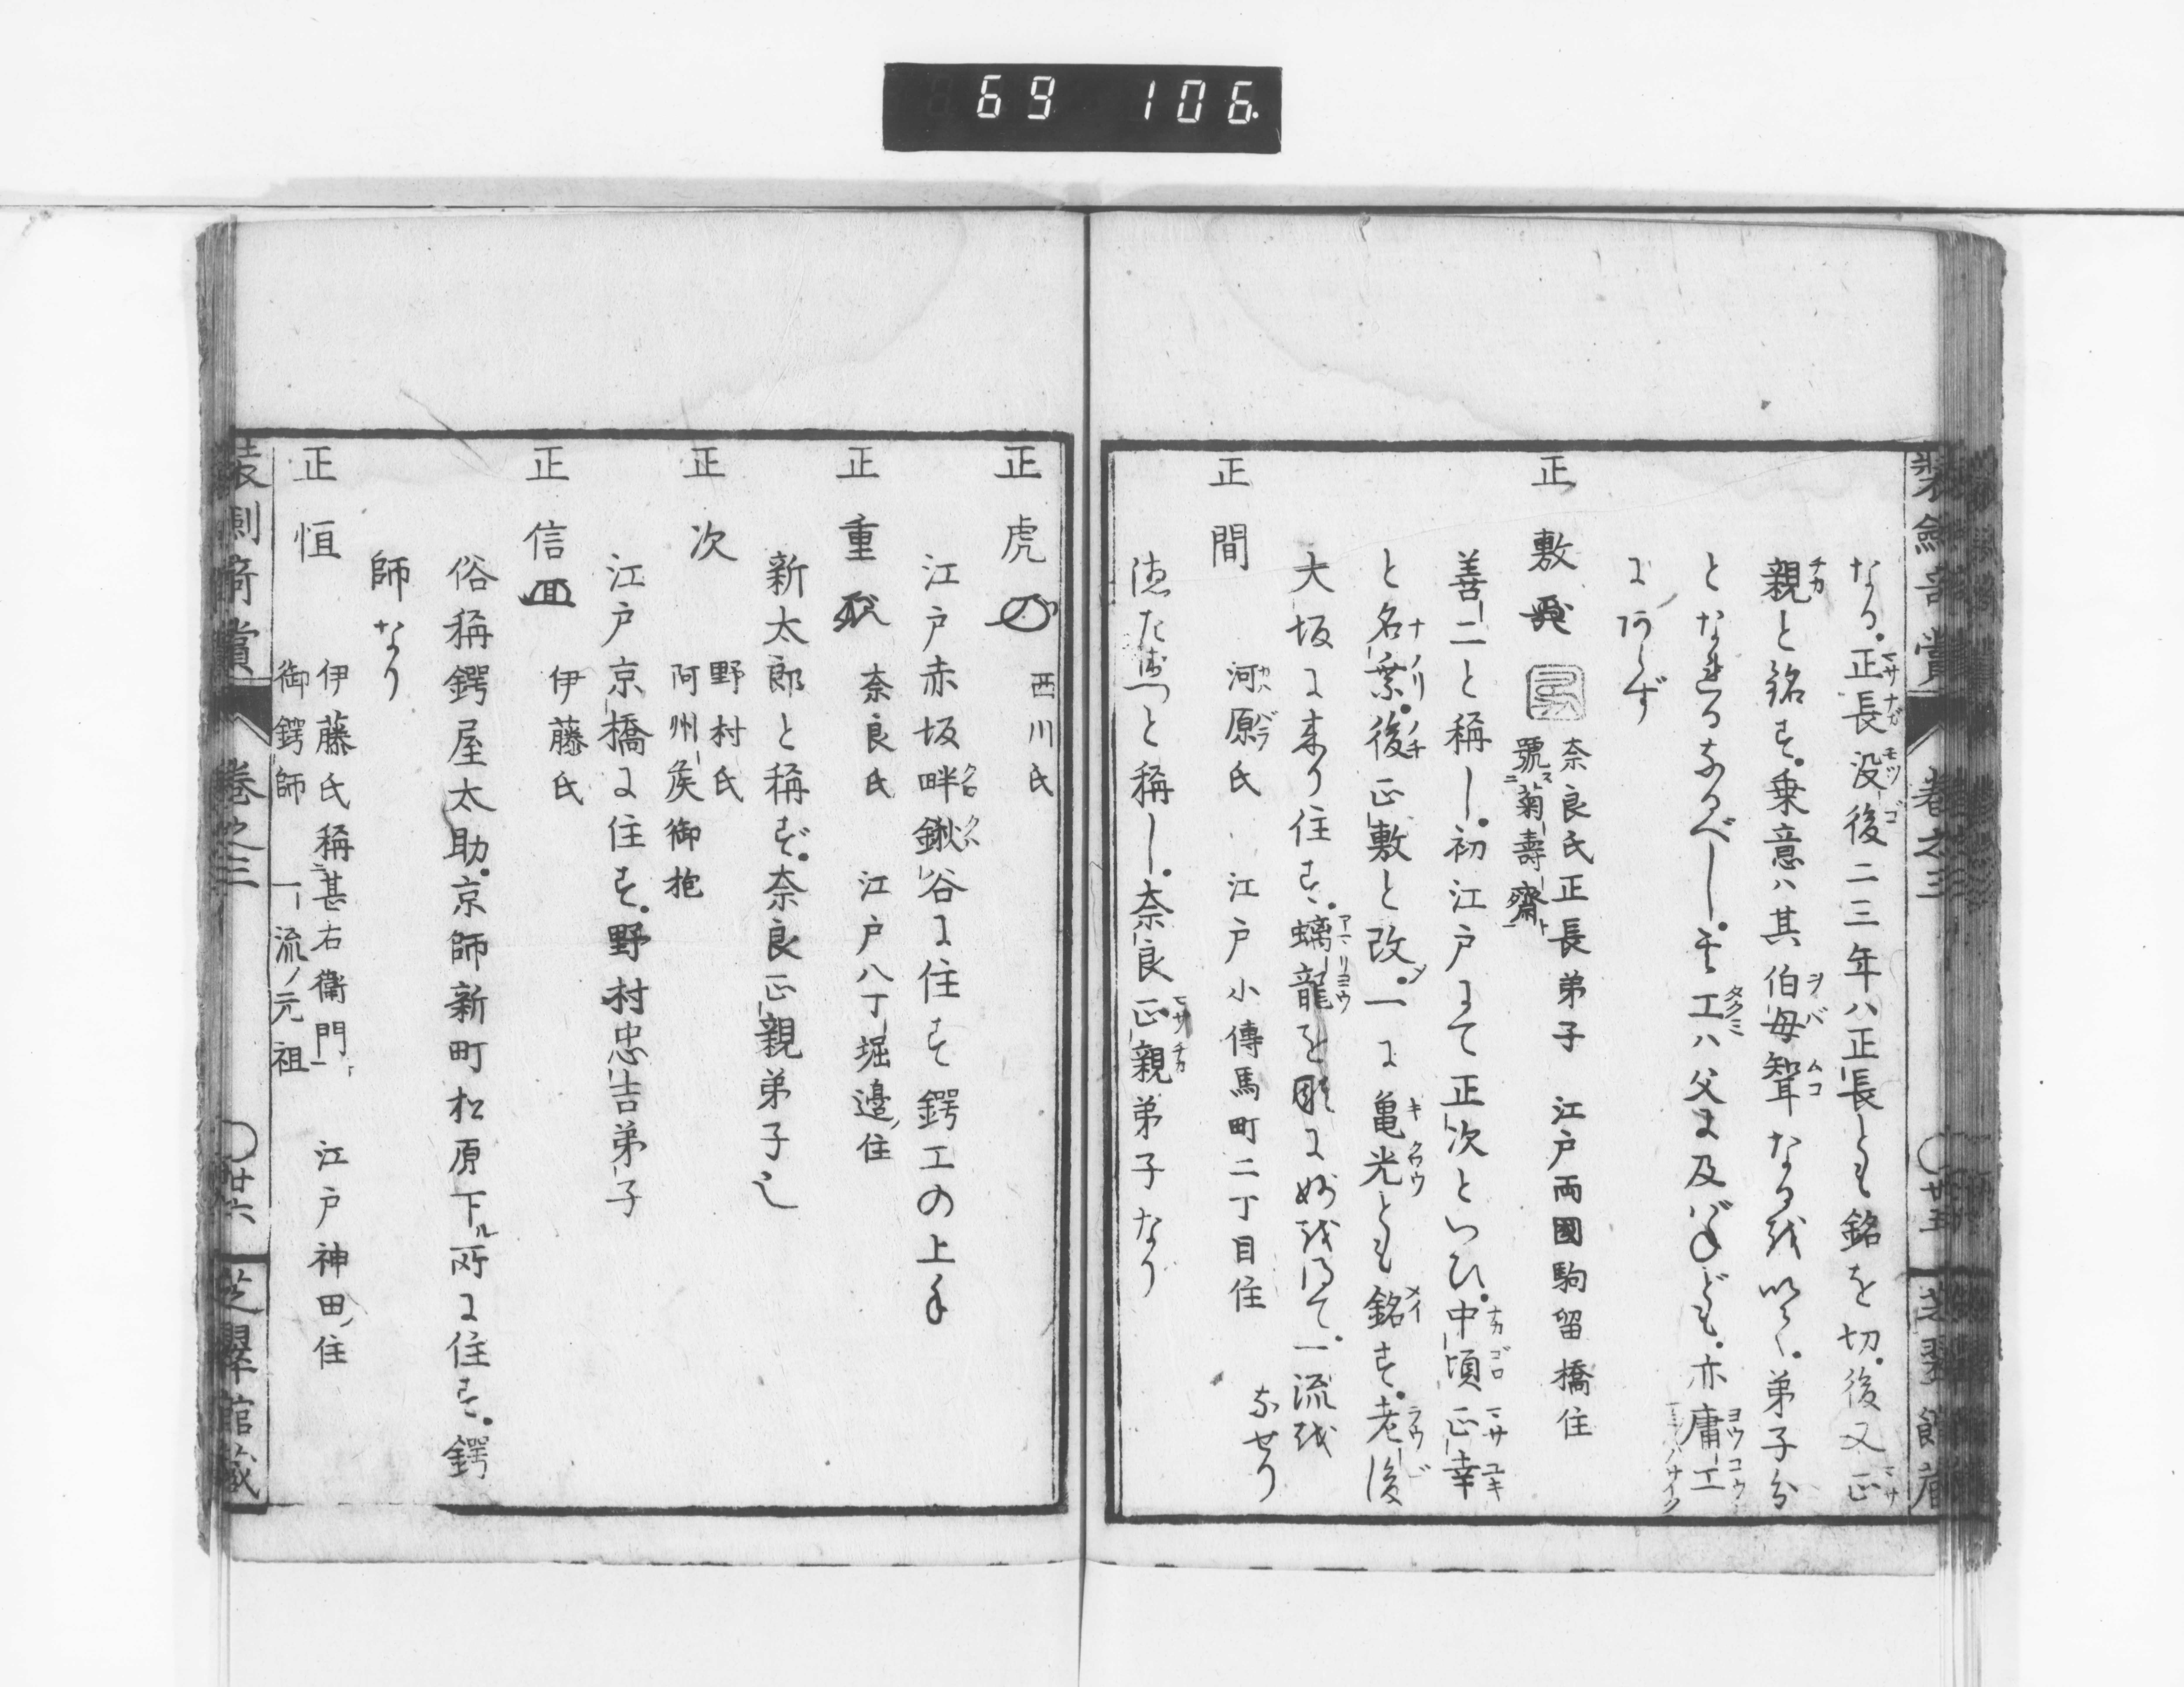 69 106
装剱奇賞 巻之三 廿五 芝翠館蔵
なる。正長没後二三年ハ正長とも銘を切。後又正
親と銘す。乗意ハ其伯母聟なるを以て。弟子分
となれるなるべし。其工ハ父に及バねども。亦庸工
にあらず
正敷 奈良氏正長弟子 江戸両國駒留橋住
號菊壽齋
善二と稱し。初江戸にて正次といひ。中頃正幸
と名乗。後正敷と改。一に亀光とも銘す。老後
大坂に来り住す。螭龍を彫に妙を得て。一流を
なせり
正間 河原氏 江戸小傳馬町二丁目住
と稱し。奈良正親弟子なり
正虎 西川氏
江戸赤坂畔鍬谷に住す鍔工の上手
正重 奈良氏 江戸八丁堀邉住
新太郎と稱ず。奈良正親弟子也
正次 野村氏
阿州矦御抱
江戸京橋に住す。野村忠吉弟子
正信 伊藤氏
俗稱鍔屋太助。京師新町松原下ル所に住す。鍔
師なり
正恒 伊藤氏稱甚右衞門 江戸神田住
御鍔師 一流ノ元祖
装剱奇賞 巻之三 廿六 芝翠館蔵